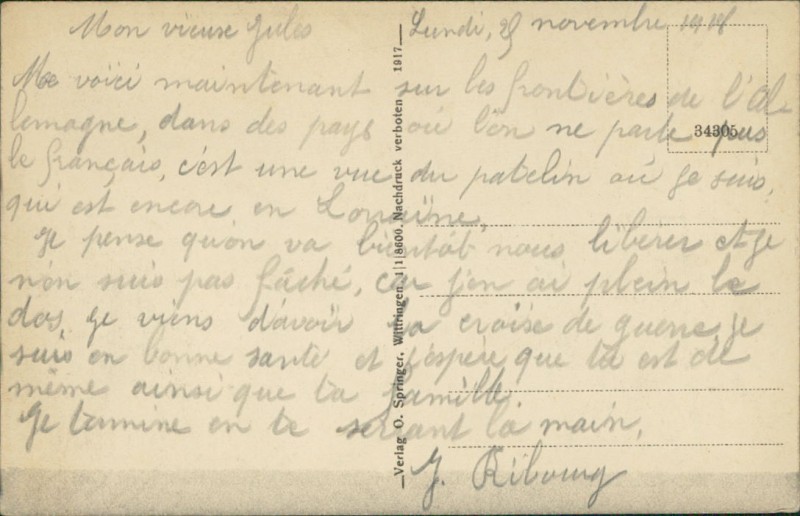 Mon vieux Jules
Lundi, 25 novembre 1918
Me voici maintenant sur les frontières de l'Al-
lemagne, dans des pays où l'on ne parle pas
le français, c'est une vue du patelin où je suis,
qui est encore en Lorraine,
Je pense qu'on va bientôt nous libérer et je
n'en suis pas fâché, car j'en ai plein le
dos, je viens d'avoir la croise de guerre, je
suis en bonne santé et j'espère que tu est de
même ainsi que ta famille.
Je tamine en te serrant la main,
J. Ribourg
34305
Verlag O. Springer, Wittringen 1|1|8600. Nachdruck verboten 1917